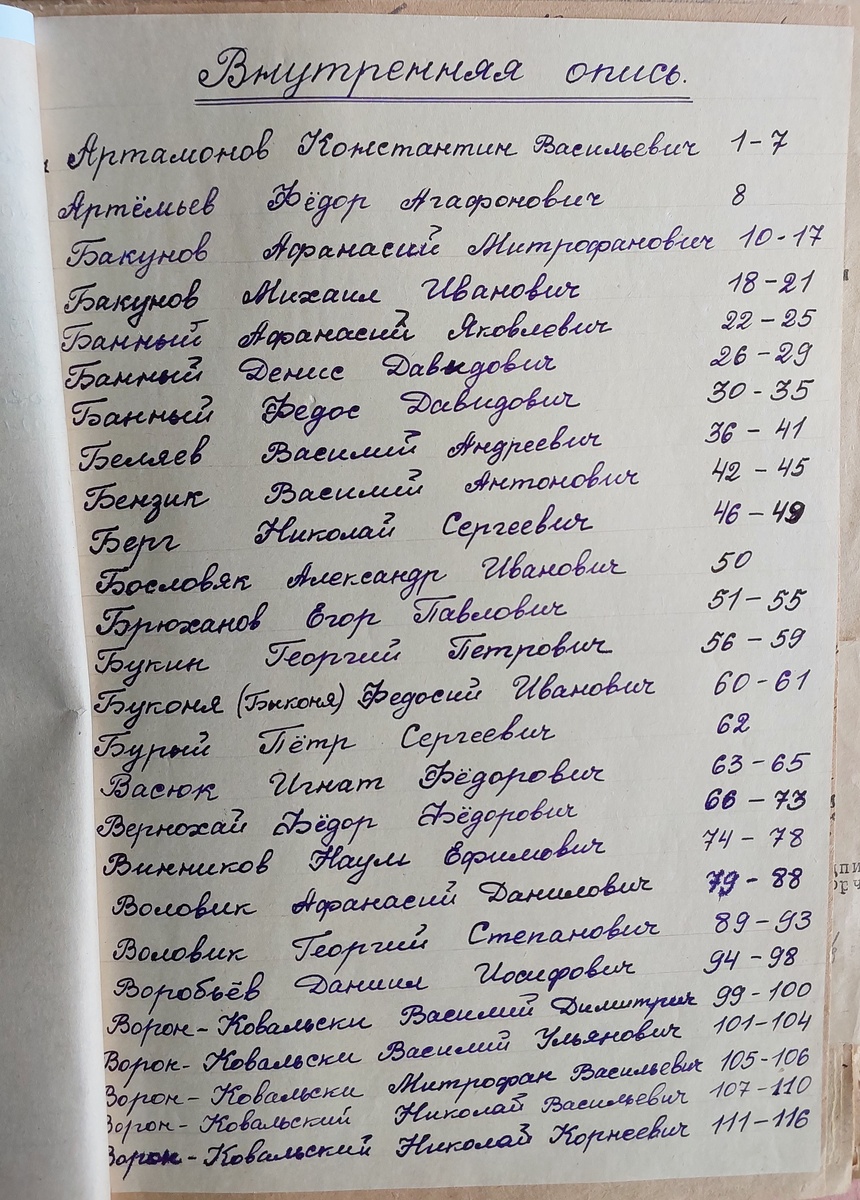 Внутренняя опись.
Артамонов Константин Васильевич 1-7
Артёмьев Фёдор Агафонович 8
Бакунов Афанасий Митрофанович 10-17
Бакунов Михаил Иванович 18-21
Банный Афанасий Яковлевич 22-25
Банный Денис Давыдович 26-29
Банный Федос Давидович 30-35
Беляев Василий Андреевич 36-41
Бензик Василий Антонович 42-45
Берг Николай Сергеевич 46-49
Бословяк Александр Иванович 50
Брюханов Егор Павлович 51-55
Букин Георгий Петрович 56-59
Буконя (Быконя) Федосий Иванович 60-61
Бурый Пётр Сергеевич 62
Васюк Игнат Фёдорович 63-65
Вернохай Фёдор Фёдорович 66-73
Винников Наум Ефимович 74-78
Воловик Афанасий Данилович 79-88
Воловик Георгий Степанович 89-93
Воробьёв Даниил Иосифович 94-98
Ворон-Ковальски Василий Димитрич 99-100
Ворон-Ковальски Василий Ульянович 101-104
Ворон-Ковальски Митрофан Васильевич 105-106
Ворон-Ковальский Николай Васильевич 107-110
Ворон-Ковальский Николай Корнеевич 111-116